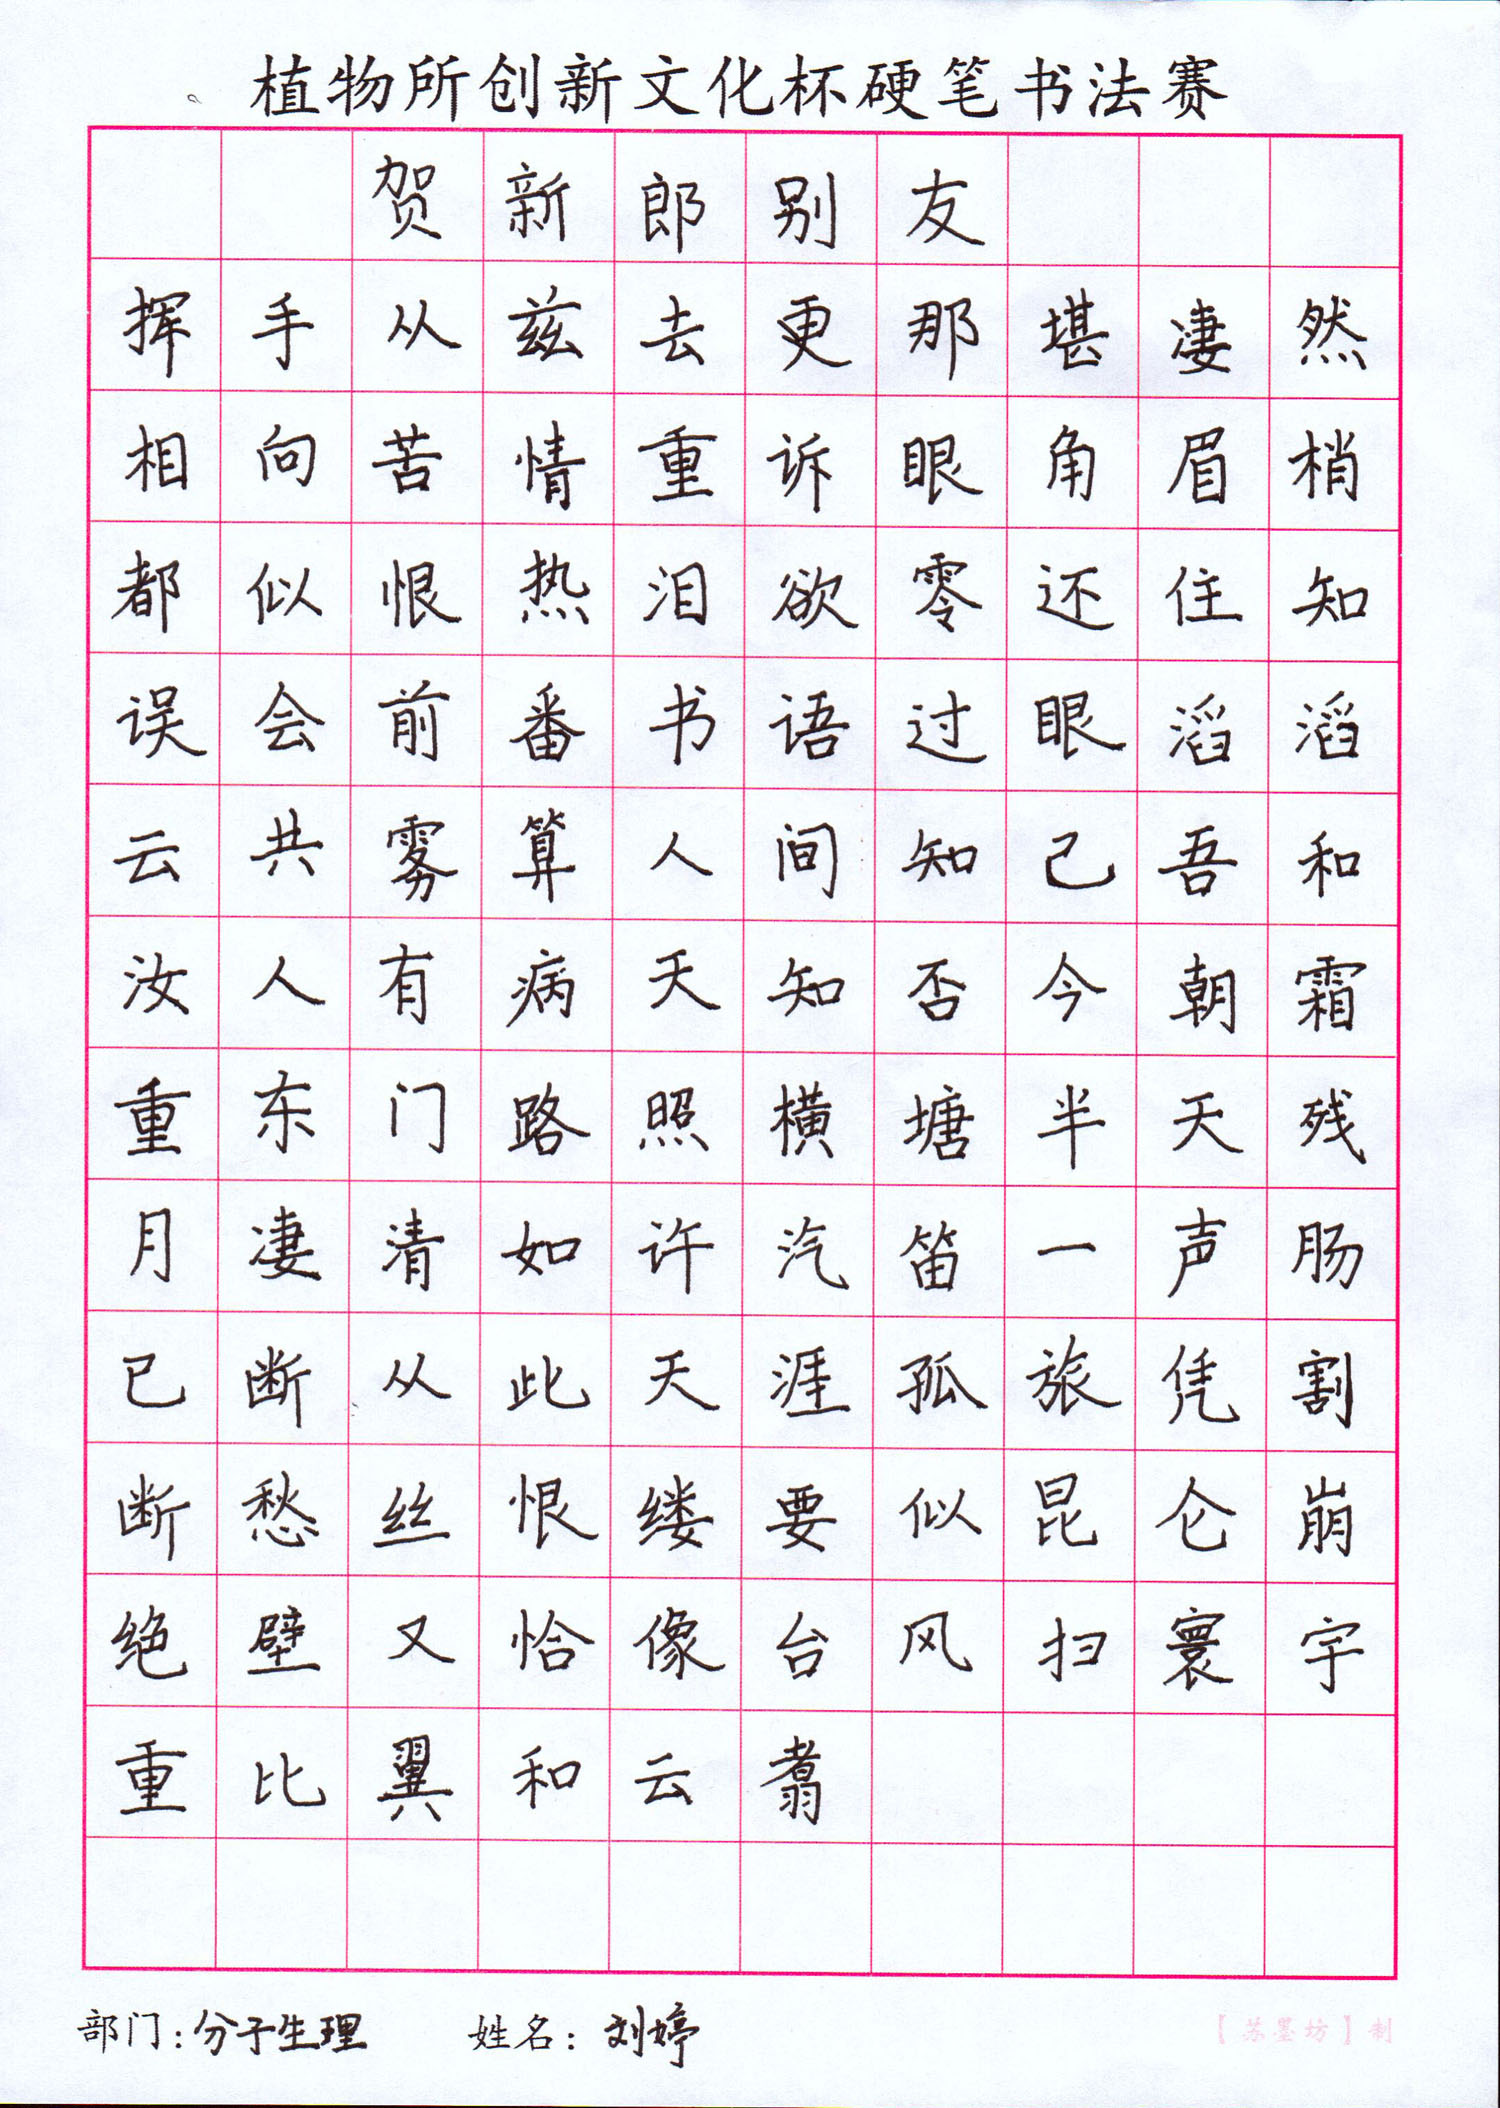 植物所创新文化杯硬笔书法赛
贺新郎别友
挥手从兹去更那堪凄然
相向苦情重诉眼角眉梢
都似恨热泪欲零还住知
误会前番书语过眼滔滔
云共雾算人间知己吾和
汝人有病天知否今朝霜
重东门路照横塘半天残
月凄清如许汽笛一声肠
已断从此天涯孤旅凭割
断愁丝恨缕要似昆仑崩
绝壁又恰像台风扫寰宇
重比翼和云翥
部门：分子生理 姓名：刘婷
【苏墨坊】制